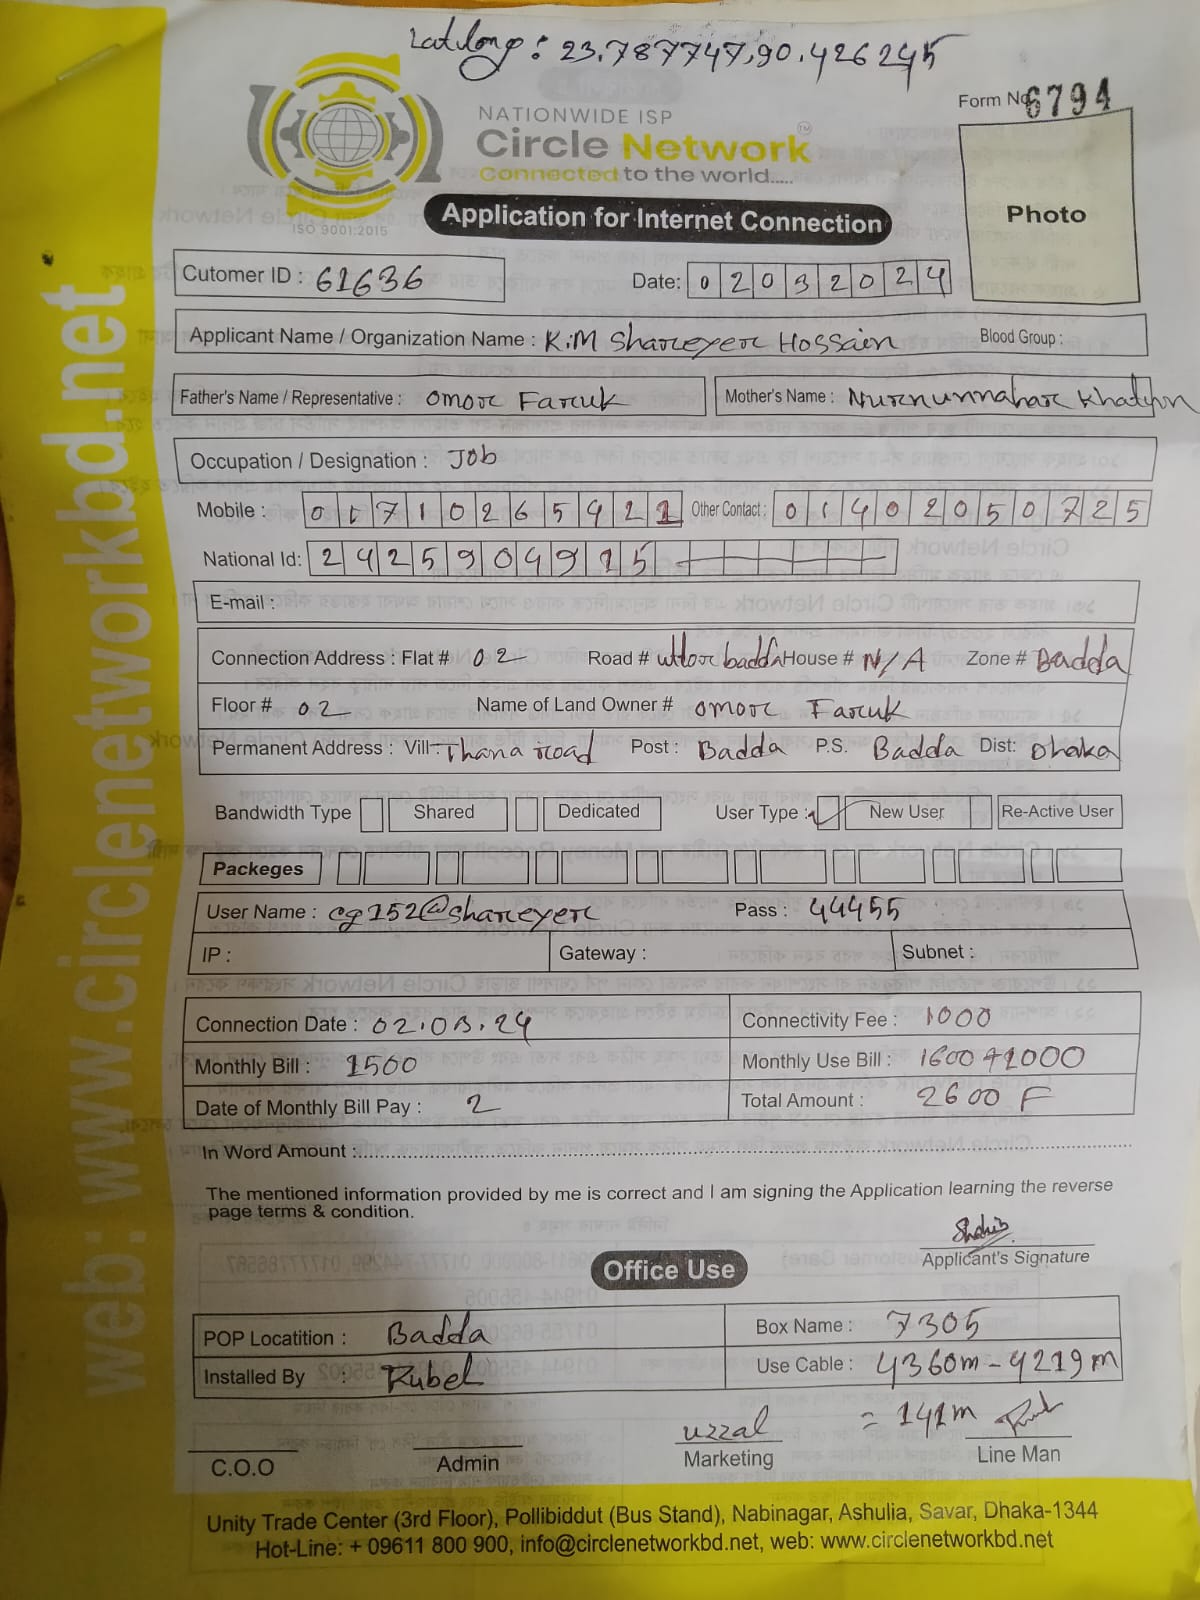 Latilong: 23.787747,90.426245
NATIONWIDE ISP
Form No 6794
Circle Network TM
Connected to the world.....
ISO 9001:2015
Application for Internet Connection
Photo
Cutomer ID : 61636 Date: 02032024
Applicant Name / Organization Name : K.M Shareyer Hossain Blood Group :
Father's Name / Representative : Omor Faruk Mother's Name : Nurunnahar Khatun
Occupation / Designation : Job
Mobile : 01710265921 Other Contact : 01402050725
National Id: 2425904915
E-mail :
Connection Address : Flat # 02 Road # uttor badda House # N/A Zone # Badda
Floor # 02 Name of Land Owner # Omor Faruk
Permanent Address : Vill- Thana road Post : Badda P.S. Badda Dist: Dhaka
Bandwidth Type Shared Dedicated User Type : New User Re-Active User
Packeges
User Name : cg152@shareyer Pass : 44455
IP : Gateway : Subnet :
Connection Date : 02.03.24 Connectivity Fee : 1000
Monthly Bill : 1500 Monthly Use Bill : 1600+1000
Date of Monthly Bill Pay : 2 Total Amount : 2600 F
In Word Amount :
The mentioned information provided by me is correct and I am signing the Application learning the reverse
page terms & condition.
Applicant's Signature
Office Use
POP Locatition : Badda Box Name : 7305
Installed By : Rubel Use Cable : 4360m-4219m
= 141m
uzzal
C.O.O Admin Marketing Line Man
Unity Trade Center (3rd Floor), Pollibiddut (Bus Stand), Nabinagar, Ashulia, Savar, Dhaka-1344
Hot-Line: + 09611 800 900, info@circlenetworkbd.net, web: www.circlenetworkbd.net
web: www.circlenetworkbd.net